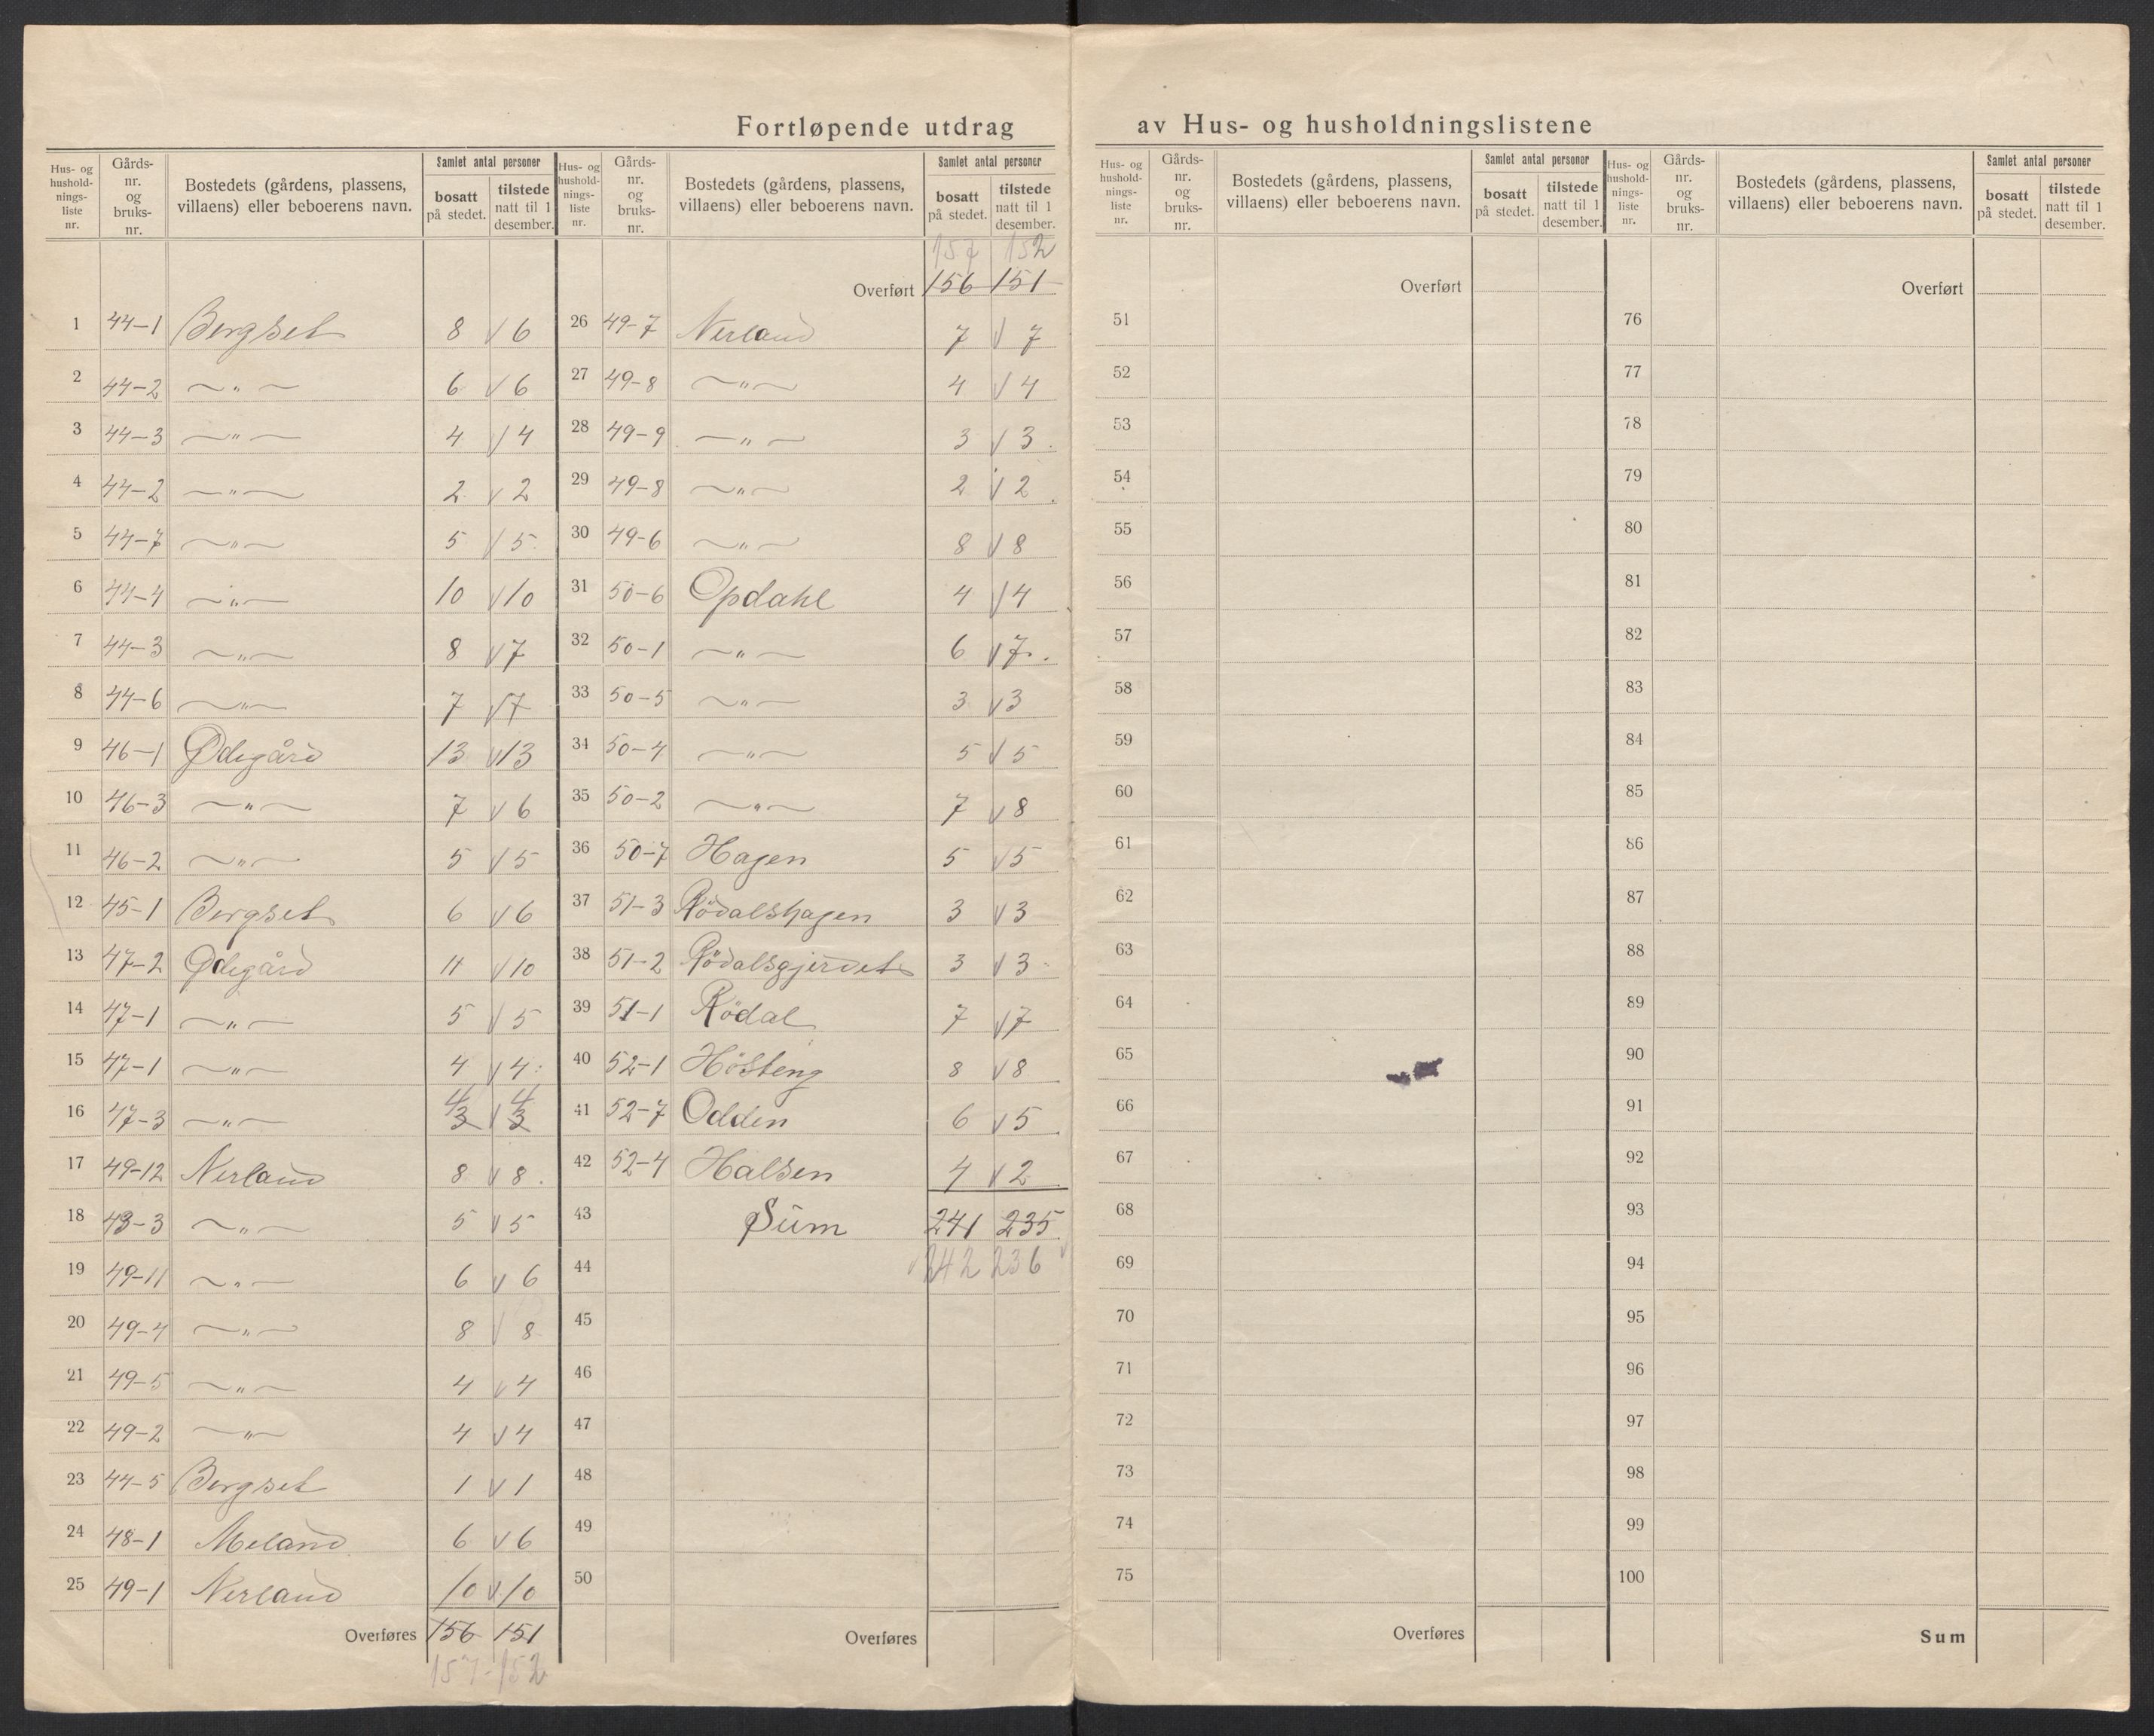 Fortløpende utdrag av Hus- og husholdningslistene
Hus- og husholdnings-liste nr. | Gårds-nr. og bruks-nr. | Bostedets (gårdens, plassens, villaens) eller beboerens navn. | Samlet antal personer | bosatt på stedet. | tilstede natt til 1 desember.
1 44-1 Bergset 8 v 6
2 44-2 —"— 6 v 6
3 44-3 —"— 4 v 4
4 44-2 —"— 2 v 2
5 44-7 —"— 5 v 5
6 44-4 —"— 10 v 10
7 44-3 —"— 8 v 7
8 44-6 —"— 7 v 7
9 46-1 Ødegård 13 v 13
10 46-3 —"— 7 v 6
11 46-2 —"— 5 v 5
12 45-1 Bergset 6 v 6
13 47-2 Ødegård 11 v 10
14 47-1 —"— 5 v 5
15 47-1 —"— 4 v 4
16 47-3 —"— 4 3 v 4 3
17 49-12 Nerland 8 v 8
18 43-3 —"— 5 v 5
19 49-11 —"— 6 v 6
20 49-4 —"— 8 v 8
21 49-5 —"— 4 v 4
22 49-2 —"— 4 v 4
23 44-5 Bergset 1 v 1
24 48-1 Meland 6 v 6
25 49-1 Nerland 10 v 10
Overføres 156 151
157 - 152
Hus- og husholdnings-liste nr. | Gårds-nr. og bruks-nr. | Bostedets (gårdens, plassens, villaens) eller beboerens navn. | Samlet antal personer | bosatt på stedet. | tilstede natt til 1 desember.
157 152
Overført 156 151
26 49-7 Nerland 7 v 7
27 49-8 —"— 4 v 4
28 49-9 —"— 3 v 3
29 49-8 —"— 2 v 2
30 49-6 —"— 8 v 8
31 50-6 Opdahl 4 v 4
32 50-1 —"— 6 v 7
33 50-5 —"— 3 v 3
34 50-4 —"— 5 v 5
35 50-2 —"— 7 v 8
36 50-7 Hagen 5 v 5
37 51-3 Rödalshagen 3 v 3
38 51-2 Rödalsgjerdet 3 v 3
39 51-1 Rödal 7 v 7
40 52-1 Hösteng 8 v 8
41 52-7 Odden 6 v 5
42 52-4 Halsen 4 v 2
43 Sum 241 235
44 v 242 236 v
45
46
47
48
49
50
Overføres
Hus- og husholdnings-liste nr. | Gårds-nr. og bruks-nr. | Bostedets (gårdens, plassens, villaens) eller beboerens navn. | Samlet antal personer | bosatt på stedet. | tilstede natt til 1 desember.
Overført
51
52
53
54
55
56
57
58
59
60
61
62
63
64
65
66
67
68
69
70
71
72
73
74
75
Overføres
Hus- og husholdnings-liste nr. | Gårds-nr. og bruks-nr. | Bostedets (gårdens, plassens, villaens) eller beboerens navn. | Samlet antal personer | bosatt på stedet. | tilstede natt til 1 desember.
Overført
76
77
78
79
80
81
82
83
84
85
86
87
88
89
90
91
92
93
94
95
96
97
98
99
100
Sum